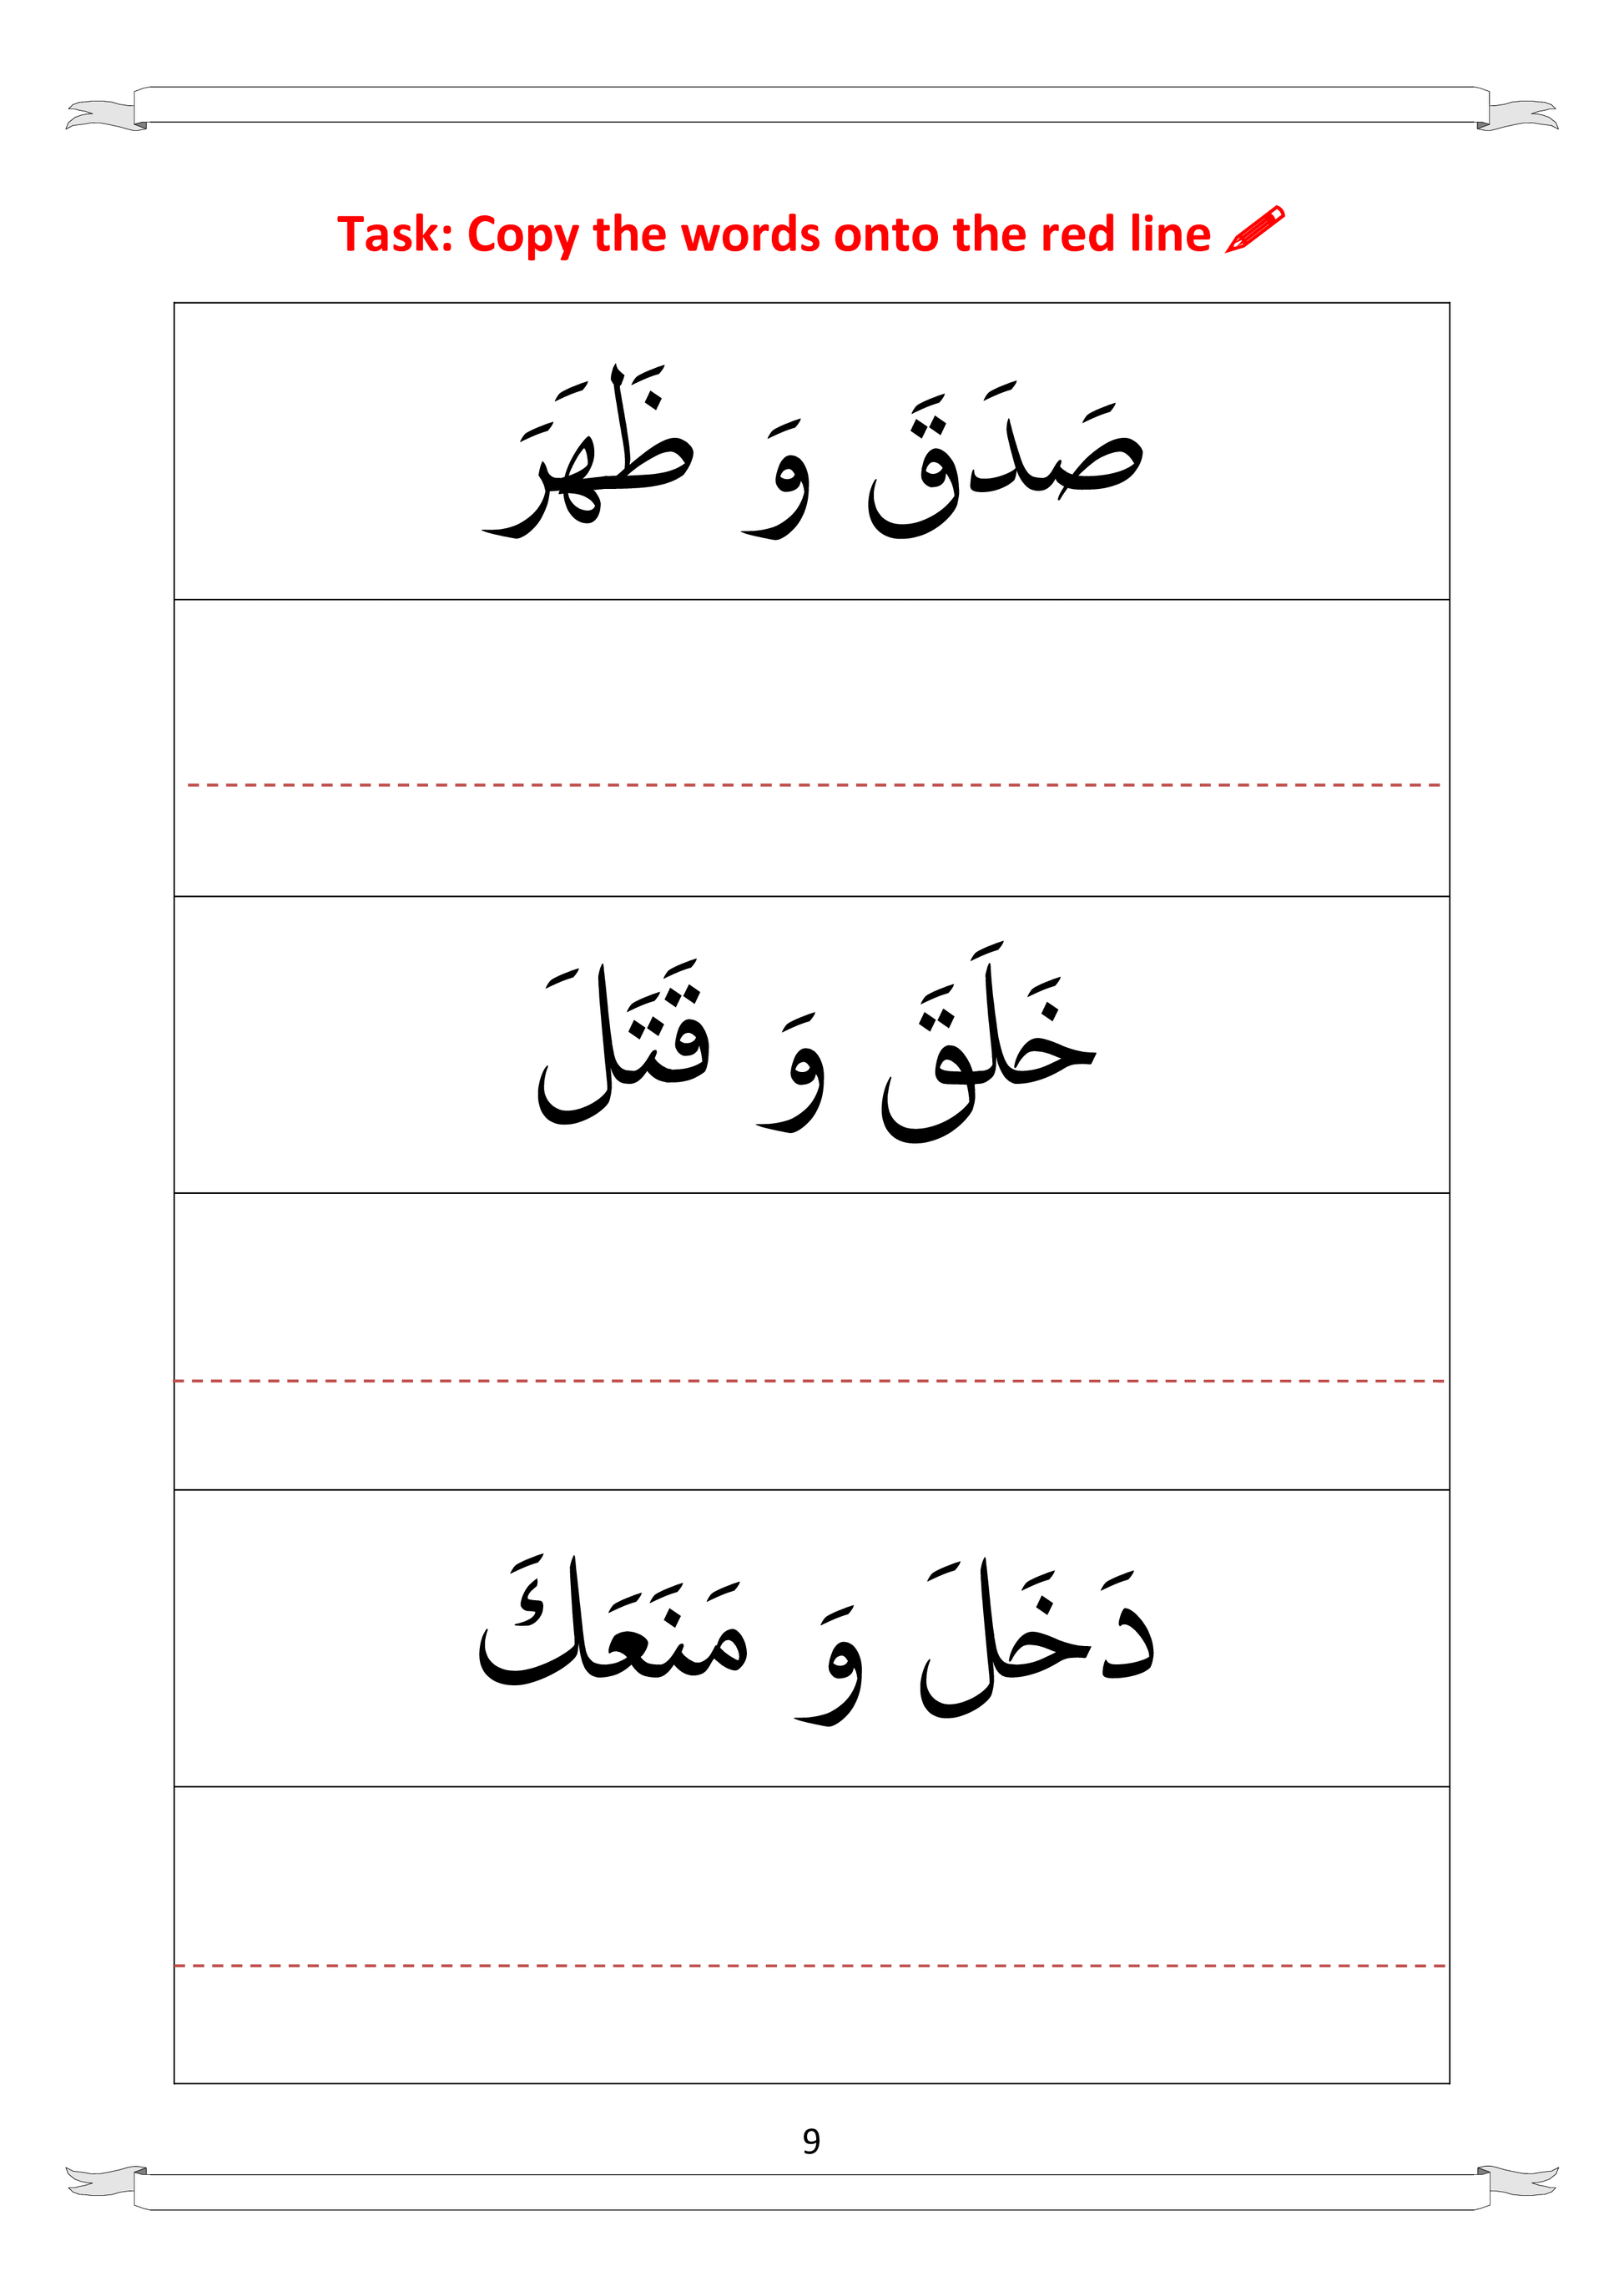 Task: Copy the words onto the red line
صَدَقَ وَ ظَهَرَ
خَلَقَ وَ قَتَلَ
دَخَلَ وَ مَنَعَكَ
9